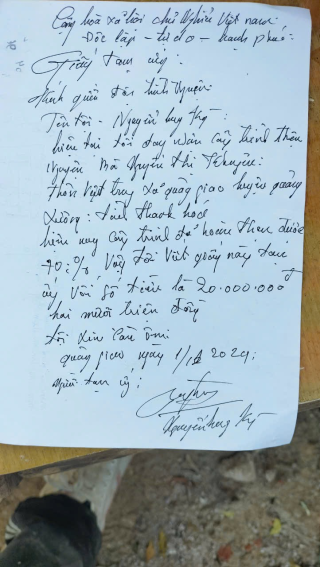 Cộng hòa xã hội chủ nghĩa Việt nam
Độc lập - tự do - hạnh phúc
Giấy tạm ứng:
Kính gửi
Tên tôi - Nguyễn huy
hiện tại tôi đang nhận công trình
Nguyện Bá Nguyễn thị
thôn Việt trung xã quảng giao huyện quảng
xương: tỉnh thanh hóa
hiện nay công trình đã hoàn thành được
70% Vậy tôi viết giấy này tạm
ứng với số tiền là 20.000.000đ
hai mươi triệu đồng
tôi xin cảm ơn
quảng giao ngày 1/ 2024
người tạm ứng:
Nguyễn huy